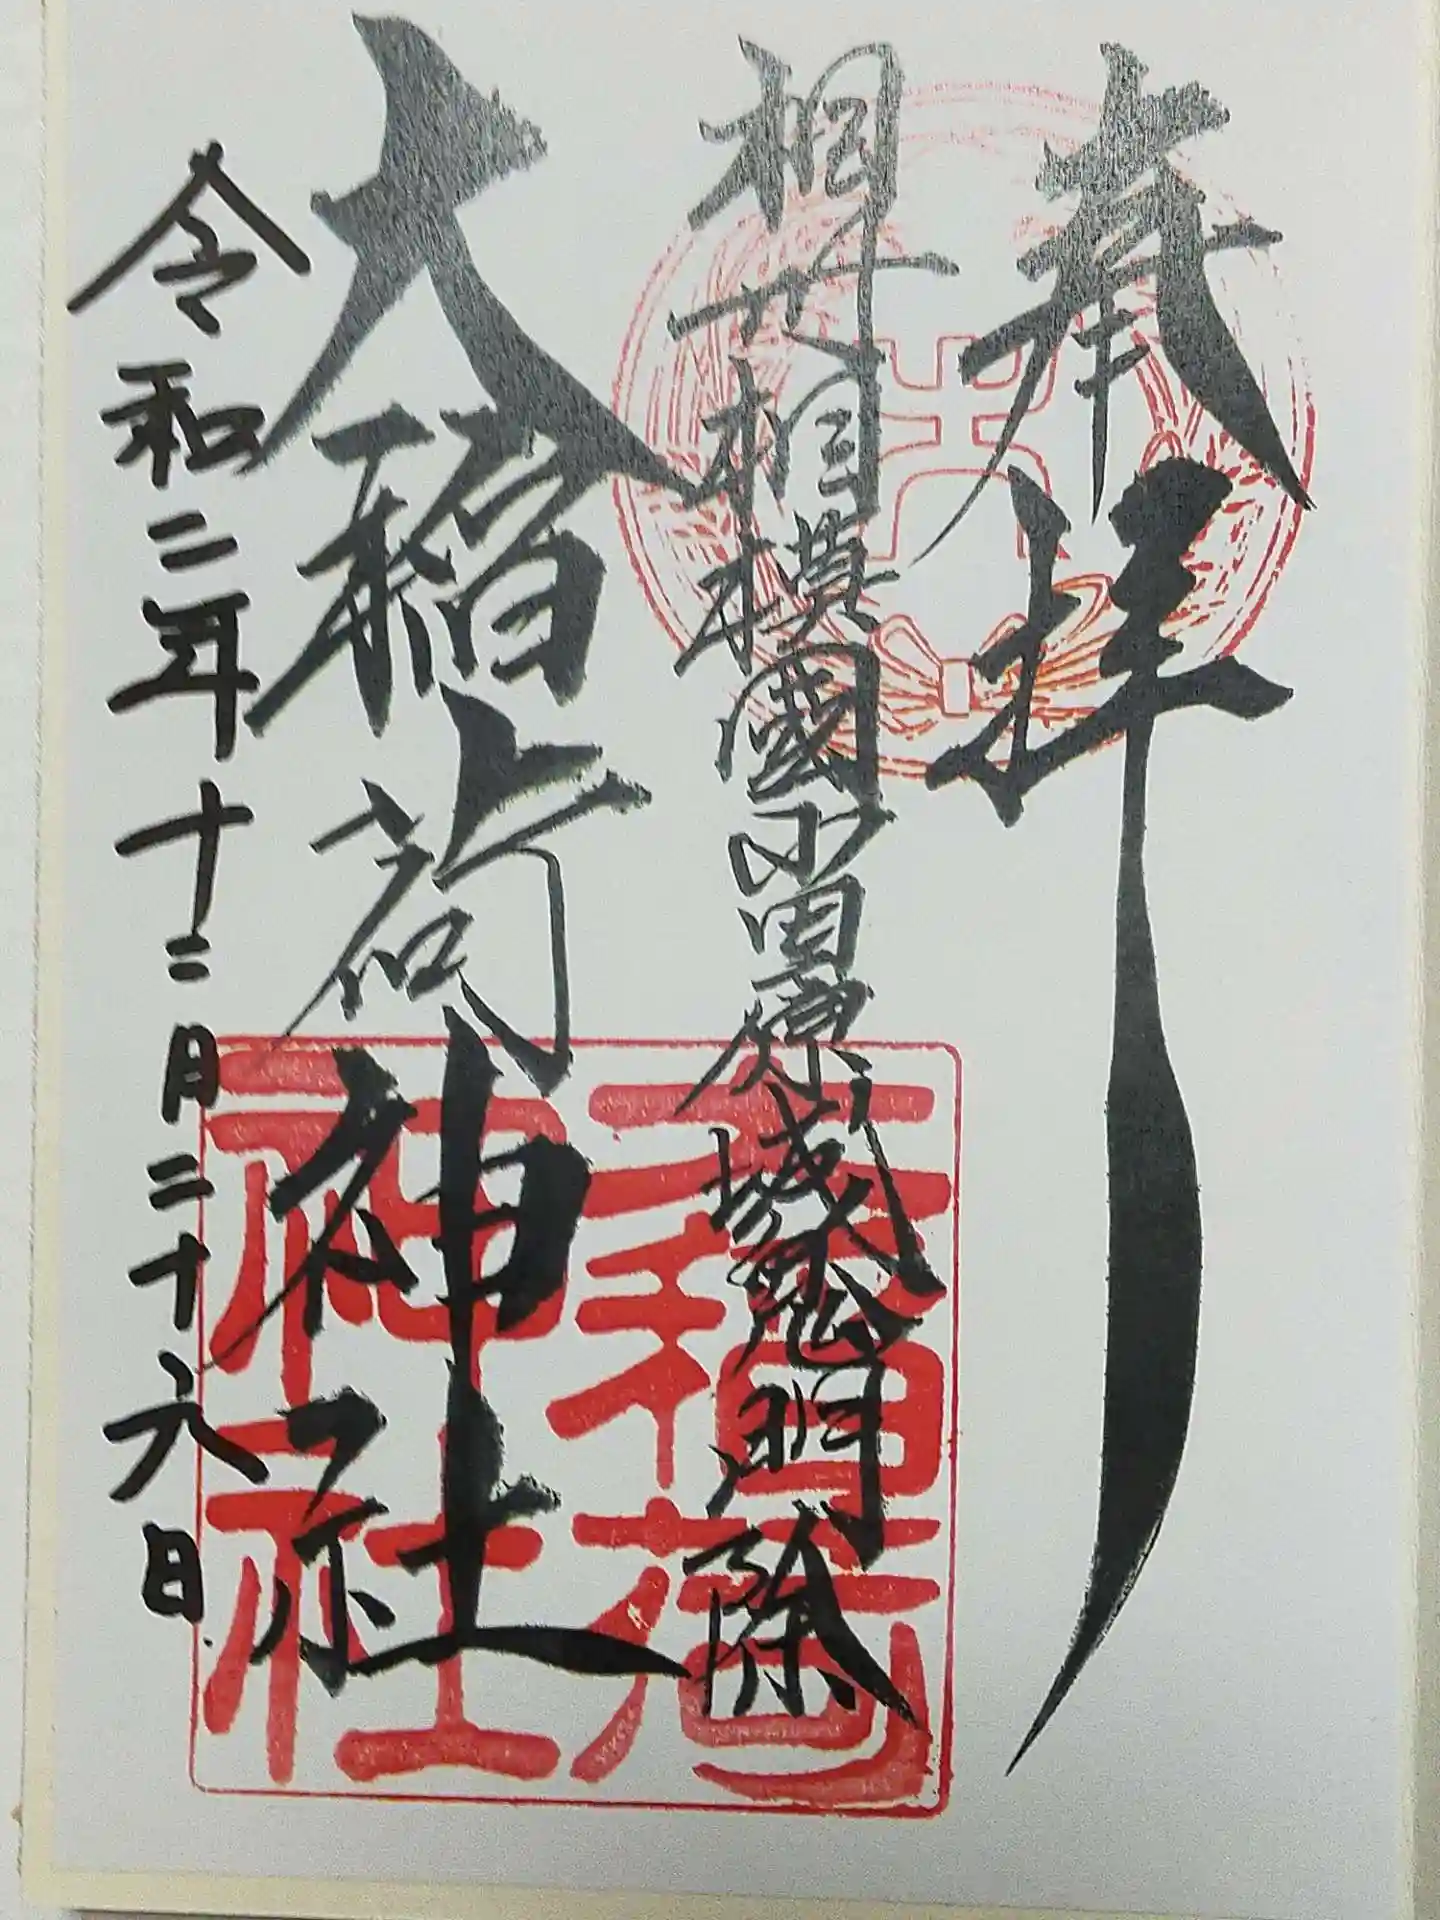 奉拝
相模國小田原城鬼門除
大稲荷神社
令和二年十二月二十六日
大
大稲荷
神社